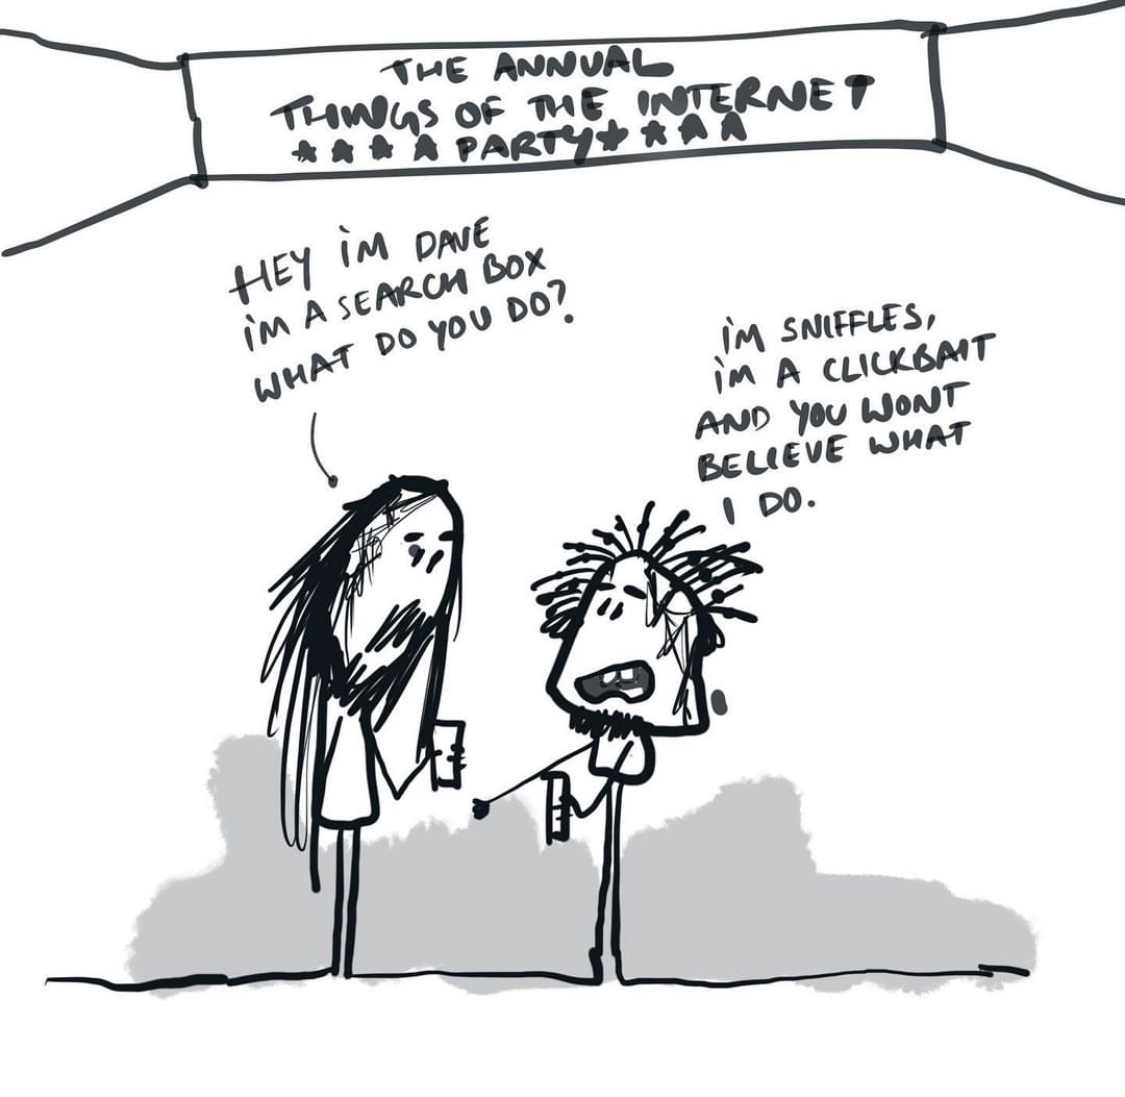 THE ANNUAL
THINGS OF THE INTERNET
★★★★ PARTY★★★★
HEY i'M DAVE
i'M A SEARCH BOX
WHAT DO YOU DO?
i'M SNIFFLES,
i'M A CLICKBAIT
AND YOU WONT
BELIEVE WHAT
I DO.